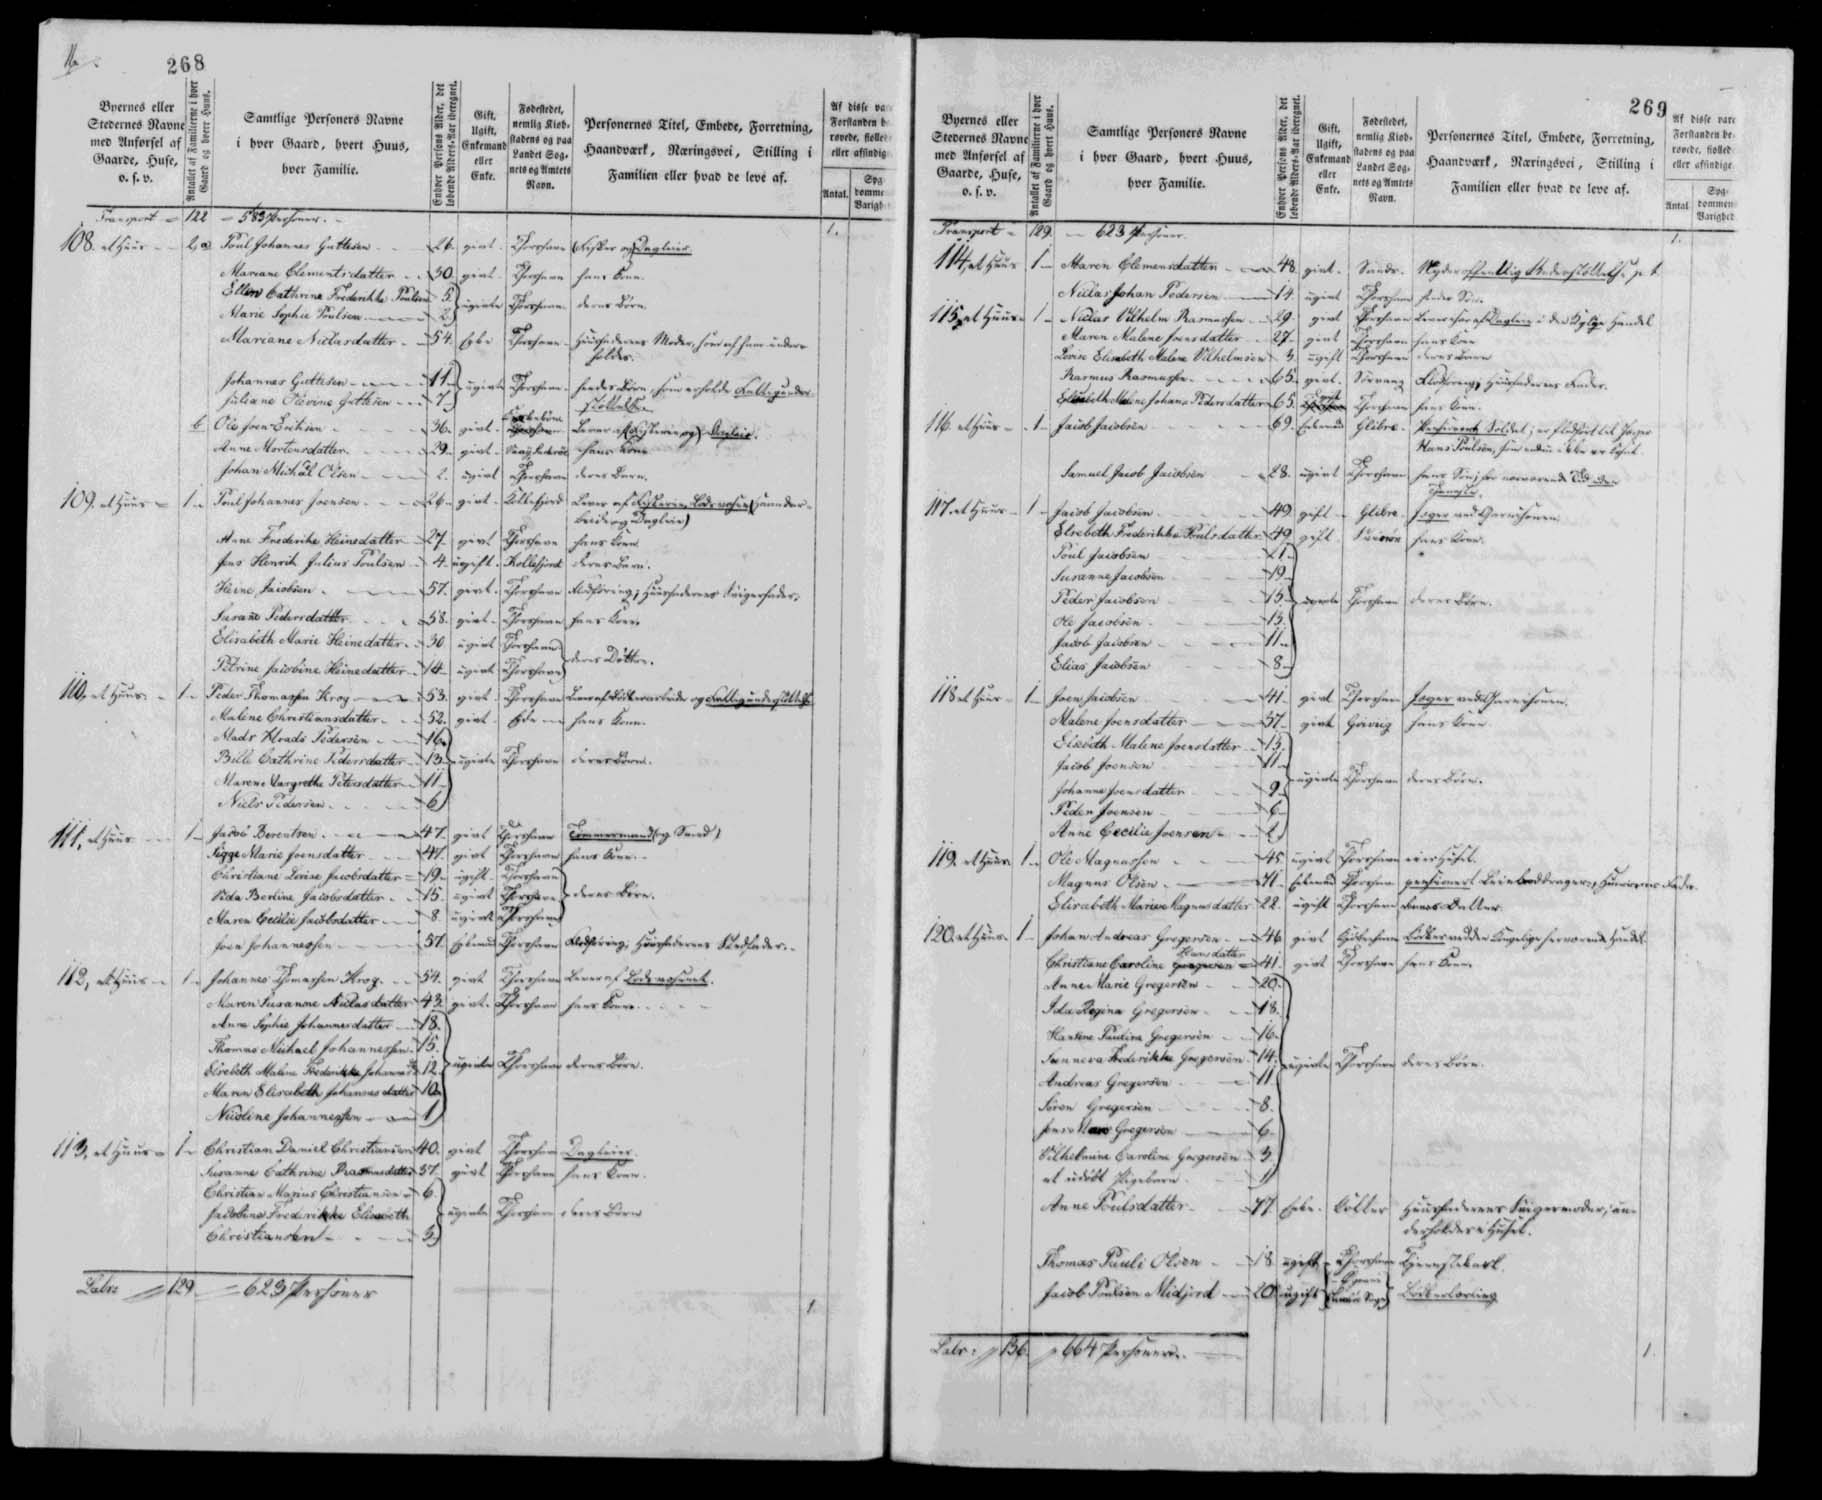 268
Byernes eller Stedernes Navne med Anførsel af Gaarde, Huse, o. s. v.
Antallet af Familierne i hver Gaard og hvert Huus.
Samtlige Personers Navne i hver Gaard, hvert Huus, hver Familie.
Enhver Persons Alder, det løbende Alders-Aar iberegnet.
Gift, Ugift, Enkemand eller Enke.
Fødestedet, nemlig Kiøbstadens og paa Landet Sognets og Amtets Navn.
Personernes Titel, Embede, Forretning, Haandværk, Næringsvei, Stilling i Familien eller hvad de leve af.
Antal.
Transport 122 583 Personer. 1.
108. et Huus 2 a Poul Johannes Guttesen 26. givt Thorshavn (Fisker og) Dagleier
Mariane Clementsdatter 30. givt Thorshavn hans Kone.
Ellen Cathrine Frederikke Poulsen 5 ugivte Thorshavn deres Børn.
Marie Sophie Poulsen 2
Mariane Niclasdatter 54. Enke Thorshavn Huusfaderens Moder, som af ham underholdes.
Johannes Guttesen 11 ugivte Thorshavn hendes Børn, som erholde Fattigunderstøttelse
Juliane Olevine Guttesen 7
b Ole Joen Eriksen 36. givt Lever af (Fiskerie og) Dagleie.
Anne Mortensdatter 29. givt hans Kone
Johan Michal Olsen 2. ugivt Thorshavn deres Barn.
109. et Huus 1 Poul Johannes Joensen 26 givt Kollefjord Lever af Fiskerie, Lodsvæsen (Haandarbeide og Dagleie)
Anne Frederike Heinesdatter 27. givt Thorshavn hans Kone
Jens Henrik Julius Poulsen 4. ugift Kollefjord deres Barn.
Heine Jacobsen 57. givt Thorshavn Huusfaderens Svigerfader.
Susanne Pedersdatter 58. givt Thorshavn hans Kone
Elisabeth Marie Heinedatter 30 ugivt Thorshavn deres Døttre.
Petrine Jacobine Heinedatter 14 ugivt Thorshavn
110. et Huus 1 Peder Thomassen Krog 53. givt Thorshavn og Fattigunderstøttelse
Malene Christiansdatter 52. givt hans Kone.
Mads Pedersen 16
Bille Cathrine Pedersdatter 13 ugivte Thorshavn deres Børn.
Maren Margrethe Petersdatter 11
Niels Pedersen 6
111. et Huus 1 Jacob Berentsen 47. givt Thorshavn Tømmermand (og Smed)
Sigge Marie Joensdatter 47. givt Thorshavn hans Kone.
Christiane Lovise Jacobsdatter 19 ugift Thorshavn
Sida Berline Jacobsdatter 15. ugivt Thorshavn deres Børn.
Maren Cecilie Jacobsdatter 8. ugivt Thorshavn
Joen Johannessen 57. Enkemand Thorshavn Huusfaderens
112. et Huus 1 Johannes Thomassen Krog 54. givt Thorshavn Lever af Lodsvæsenet.
Maren Susanne Niclasdatter 43. givt Thorshavn hans Kone
Anne Sophie Johannesdatter 18.
Thomas Michael Johannessen 15.
Elsebeth Malene Frederikke Johannesd. 12 ugivte Thorshavn deres Børn.
Maren Elisabeth Johannesdatter 10
Nicoline Johannessen 1
113. et Huus 1 Christian Daniel Christiansen 40. givt Thorshavn Dagleier
Susanne Cathrine Rasmusdatter 37. givt Thorshavn hans Kone.
Christian Marius Christiansen 6.
Jacobine Frederikke Elisabeth ugivte Thorshavn deres Børn
Christiansen 3
Latus 129 623 Personer
1
269
Byernes eller Stedernes Navne med Anførsel af Gaarde, Huse, o. s. v.
Antallet af Familierne i hver Gaard og hvert Huus.
Samtlige Personers Navne i hver Gaard, hvert Huus, hver Familie.
Enhver Persons Alder, det løbende Alders-Aar iberegnet.
Gift, Ugift, Enkemand eller Enke.
Fødestedet, nemlig Kiøbstadens og paa Landet Sognets og Amtets Navn.
Personernes Titel, Embede, Forretning, Haandværk, Næringsvei, Stilling i Familien eller hvad de leve af.
Antal
Transport 129. 623 Personer. 1.
114. et Huus 1 Maren Clemensdatter 48. givt Sands Nyder offentlig Understøttelse
Niclas Johan Pedersen 14. ugivt Thorshavn hendes Søn.
115. et Huus 1 Niclas Vilhelm Rasmussen 29 givt Thorshavn Handel
Maren Malene Joensdatter 27 givt Thorshavn hans Kone
Lovise Elisabeth Malene Vilhelmsen 3. ugift Thorshavn deres Barn
Rasmus Rasmussen 65. givt Huusfaderens Fader.
Elisabeth Malene Johanne Pedersdatter 65. Thorshavn hans Kone.
116. et Huus 1 Jacob Jacobsen 69. Enkemand Glibre
Samuel Jacob Jacobsen 28. ugivt Thorshavn hans Søn,
117. et Huus 1 Jacob Jacobsen 49. gift Glibre Jæger ved Garnisonen
Elsebeth Frederikke Poulsdatter 49 gift hans Kone.
Poul Jacobsen 21
Susanne Jacobsen 19
Peder Jacobsen 15. ugivte Thorshavn deres Børn.
Ole Jacobsen 13.
Jacob Jacobsen 11
Elias Jacobsen 8
118 et Huus 1 Joen Jacobsen 41. givt Thorshavn Jæger ved Garnisonen.
Malene Joensdatter 37 givt hans Kone
Elsebeth Malene Joensdatter 13
Jacob Joensen 11
Johanne Joensdatter 9 ugivte Thorshavn deres Børn.
Peder Joensen 6
Anne Cecilie Joensen 2
119. et Huus 1 Ole Magnussen 45. ugivt Thorshavn eier Huset.
Magnus Olsen 71. Enkemand Thorshavn pensioneret Fader
Elisabeth Marie Magnusdatter 22. ugift Thorshavn Datter.
120. et Huus 1 Johan Andreas Gregersen 46 givt Handel.
Christiane Caroline Hansdatter 41. givt Thorshavn hans Kone
Anne Marie Gregersen 20
Ida Regina Gregersen 18.
Hansine Pauline Gregersen 16.
Sunneva Frederikke Gregersen 14. ugivte Thorshavn deres Børn.
Andreas Gregersen 11
Søren Gregersen 8.
Jens Gregersen 6
Vilhelmine Caroline Gregersen 3
et udøbt Pigebarn 1
Anne Poulsdatter 77. Enke Huusfaderens Svigermoder, underholdes i Huset.
Thomas Pauli Olsen 18 ugift Thorshavn Tjenestekarl.
Jacob Poulsen Midjord 20 ugift Bødkerlærling
Latus 136. 664 Personer. 1.